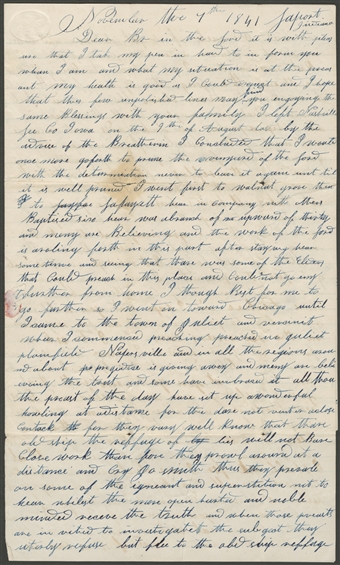 November the 7th 1841 Laport
Indiana
Dear Bro in the Lord it is with pleas
ure that I take my pen in hand to in form you
whare I am and what my situation is at the presen
ent my health is good as I Could expect and I hope
that these few unpolished lines may find you enjoying the
same Blessings with your family I left Nashville
Lee Co Iowa on the 9th of August last by the
advice of the Breatheren I Concluded that I would
once more goforth to prune the vineyard of the Lord
with the determination never to leave it again until
it is well pruned I went first to walnut grove then
to Lafayett hear in Company with
Baptised six hear was a branch of an upward of thirty
and meny are Believeing and the work of the Lord
is a roling forth in this part after staying hear
some time and seeing that thare was some of the Elders
that Could preach in this place and Could not go eny
further from home I though Best for me to
go farther so I went on toward Chicago until
I came to the town of Juliet and
whare I commenced preaching preached in Juliet
plainfield Napersville and in all the regions arou
nd about prejudice is giveing away and meny are beli
eveing the and some have embraced it all tho
the pr of the day have set up a wonderful
howling at a distance for the dare not venture in close
Contack for they vary well know that thare
old ship the reffuge of lies will not bare
Close work than fore they prowl around at a
distance and Cry Jo smith thus they prevale
on some of the ignorant and superstition not to
hear whilst the more open hearted and noble
minded receve the truth and when those preasts
are in vited to investigate the subject they
utterly refuse but flee to the old ship reffuge